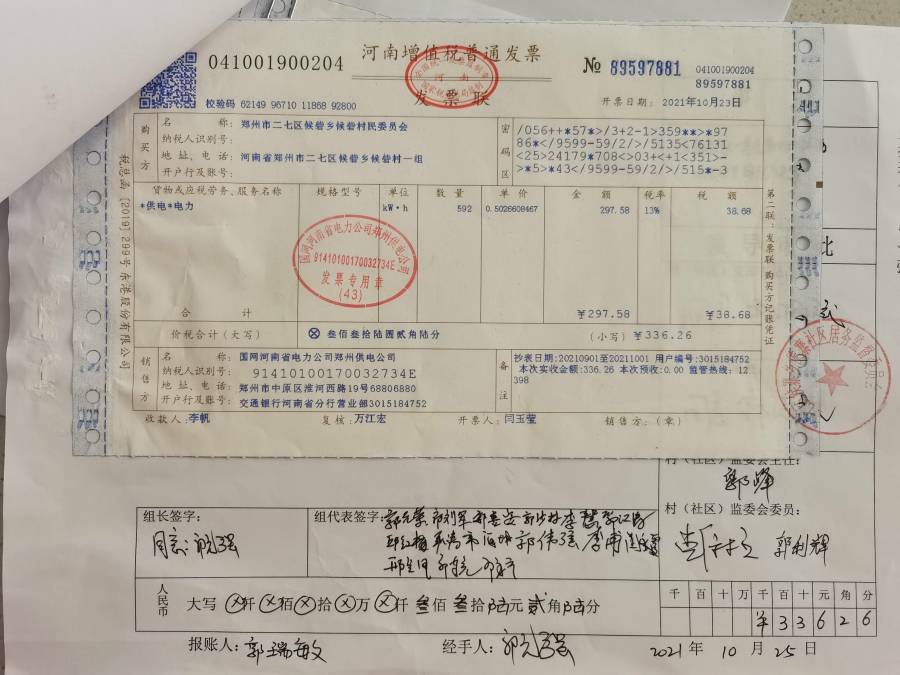 河南增值税普通发票
041001900204
发票联
№ 89597881
041001900204
89597881
校验码 62149 96710 11868 92800
开票日期: 2021年10月23日
购买方
名称: 郑州市二七区候砦乡候砦村民委员会
纳税人识别号:
地址、电话: 河南省郑州市二七区候砦乡候砦村一组
开户行及账号:
密码区
/056++*57*>/3+2-1>359**>*97
86*</9599-59/2/>/5135<76131
<25>24179*708<>03+<+1<351>-
>*5>*43</9599-59/2/>/515*-3
货物或应税劳务、服务名称 规格型号 单位 数量 单价 金额 税率 税额
*供电*电力 kW·h 592 0.5026608467 297.58 13% 38.68
国网河南省电力公司郑州供电公司
91410100170032734E
发票专用章
(43)
合计 ¥297.58 ¥38.68
价税合计(大写) ⊗ 叁佰叁拾陆圆贰角陆分 (小写) ¥336.26
销售方
名称: 国网河南省电力公司郑州供电公司
纳税人识别号: 91410100170032734E
地址、电话: 郑州市中原区淮河西路19号68806880
开户行及账号: 交通银行河南省分行营业部3015184752
备注
抄表日期:20210901至20211001 用户编号:3015184752
本次实收金额:336.26 本次预收:0.00 监管热线:12
398
收款人: 李帆 复核: 万江宏 开票人: 闫玉莹 销售方: (章)
税总函[2019]299号东港股份有限公司
第二联:发票联 购买方记账凭证
村(社区)监委会主任:
郭峰
村(社区)监委会委员:
郭利辉
组长签字:
同意
组代表签字:
人民币
大写 ⊗仟⊗佰⊗拾⊗万⊗仟叁佰叁拾陆元贰角陆分
千 百 十 万 千 百 十 元 角 分
¥ 3 3 6 2 6
报账人: 郭瑞敏 经手人:
2021年10月25日